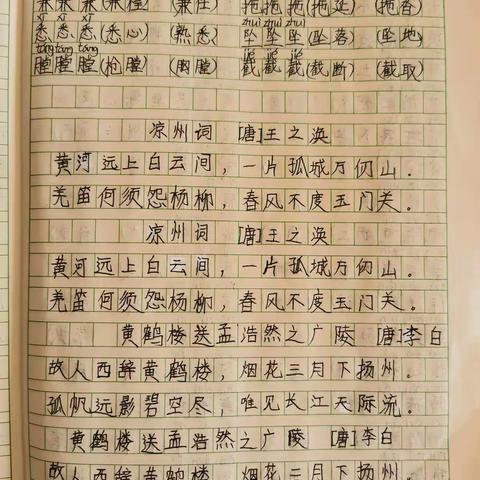 兼兼兼(兼程)(兼任) 拖拖拖(拖延)(拖沓)
xī xī xī zhuì zhuì zhuì
悉悉悉(悉心)(熟悉) 坠坠坠(坠落)(坠地)
táng táng táng jié jié jié
膛膛膛(枪膛)(胸膛) 截截截(截断)(截取)
凉州词 [唐]王之涣
黄河远上白云间，一片孤城万仞山。
羌笛何须怨杨柳，春风不度玉门关。
凉州词 [唐]王之涣
黄河远上白云间，一片孤城万仞山。
羌笛何须怨杨柳，春风不度玉门关。
黄鹤楼送孟浩然之广陵 [唐]李白
故人西辞黄鹤楼，烟花三月下扬州。
孤帆远影碧空尽，唯见长江天际流。
黄鹤楼送孟浩然之广陵 [唐]李白
故人西辞黄鹤楼 烟花三月下扬州。